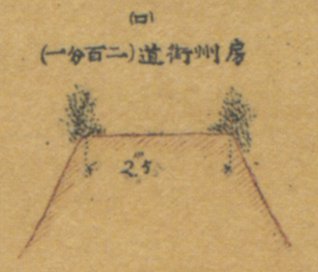 (ロ)
房州街道(二百分一)
2.5